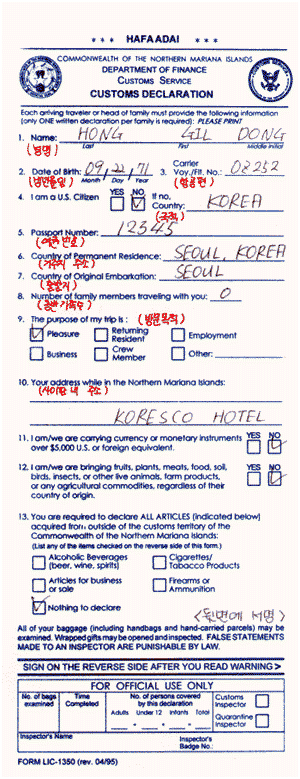 * * * HAFA ADAI * * *
COMMONWEALTH OF THE NORTHERN MARIANA ISLANDS
DEPARTMENT OF FINANCE
CUSTOMS SERVICE
CUSTOMS DECLARATION
Each arriving traveler or head of family must provide the following information
(only ONE written declaration per family is required): PLEASE PRINT
1. Name: HONG GIL DONG
(성명) Last First Middle Initial
2. Date of Birth: 09, 22, 71 3. Carrier Voy./Flt. No.: 08252
(생년월일) Month Day Year (항공편)
4. I am a U.S. Citizen YES NO If no, Country: KOREA
(국적)
5. Passport Number: 12345
(여권 번호)
6. Country of Permanent Residence: SEOUL, KOREA
(거주지 주소)
7. Country of Original Embarkation: SEOUL
(출발지)
8. Number of family members traveling with you: 0
(동반 가족수)
9. The purpose of my trip is: (방문목적)
Pleasure Returning Resident Employment
Business Crew Member Other:
10. Your address while in the Northern Mariana Islands:
(사이판 내 주소)
KORESCO HOTEL
11. I am/we are carrying currency or monetary instruments YES NO
over $5,000 U.S. or foreign equivalent.
12. I am/we are bringing fruits, plants, meats, food, soil, YES NO
birds, insects, or other live animals, farm products,
or any agricultural commodities, regardless of their
country of origin.
13. You are required to declare ALL ARTICLES (indicated below)
acquired from outside of the customs territory of the
Commonwealth of the Northern Mariana Islands:
(List any of the items checked on the reverse side of this form.)
Alcoholic Beverages (beer, wine, spirits) Cigarettes/ Tobacco Products
Articles for business or sale Firearms or Ammunition
Nothing to declare
<뒷면에 서명>
All of your baggage (including handbags and hand-carried parcels) may be
examined. Wrapped gifts may be opened and inspected. FALSE STATEMENTS
MADE TO AN INSPECTOR ARE PUNISHABLE BY LAW.
SIGN ON THE REVERSE SIDE AFTER YOU READ WARNING >
FOR OFFICIAL USE ONLY
No. of bags examined Time Completed No. of persons covered by this declaration Customs Inspector
Adults Under 12 Infants Total Quarantine Inspector
Inspector's Name Inspector's Badge No.:
FORM LIC-1350 (rev. 04/95)